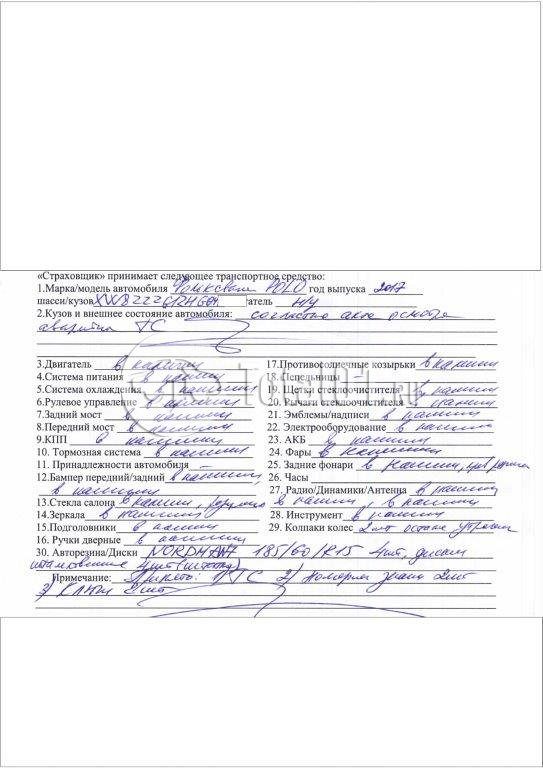 «Страховщик» принимает следующее транспортное средство:
1.Марка/модель автомобиля Фольксваген POLO год выпуска 2017
шасси/кузов XW8ZZZ61ZHG04 гатель Н/У
2.Кузов и внешнее состояние автомобиля: согласно акта осмотра
аварийна ТС
3.Двигатель в наличии
4.Система питания в наличии
5.Система охлаждения в наличии
6.Рулевое управление в наличии
7.Задний мост в наличии
8.Передний мост в наличии
9.КПП в наличии
10. Тормозная система в наличии
11. Принадлежности автомобиля –
12.Бампер передний/задний в наличии
в наличии
13.Стекла салона в наличии,
14.Зеркала в наличии
15.Подголовники в наличии
16. Ручки дверные в наличии
17.Противосолнечные козырьки в наличии
18. Пепельницы –
19. Щетки стеклоочистителя в наличии
20. Рычаги стеклоочистителя в наличии
21. Эмблемы/надписи в наличии
22. Электрооборудование в наличии
23. АКБ в наличии
24. Фары в наличии
25. Задние фонари в наличии,
26. Часы
27. Радио/Динамики/Антенна в наличии
в наличии, в наличии
28. Инструмент в наличии
29. Колпаки колес 2шт
30. Авторезина/Диски NORDMAN7 185/60/R15 4шт, диски
штамповочные 4шт
Примечание: Принято: 1) ТС 2) номерные знаки 2шт
3) Ключи 2шт